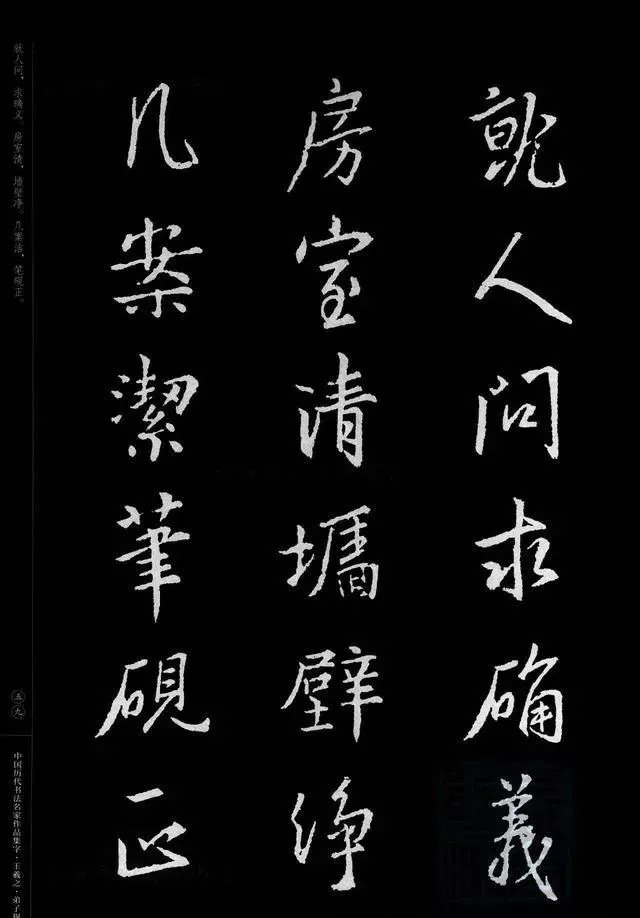 就人問求确義
房室清墻壁净
几案潔筆硯正
就人问，求确义。房室清，墙壁净。几案洁，笔砚正。
五九
中国历代书法名家作品集字·王羲之·弟子规